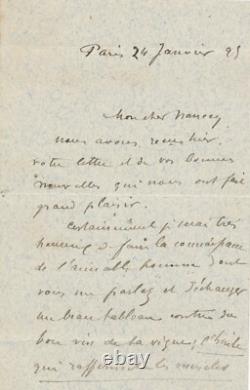 Paris 24 Janvier 95
Mon cher
nous avons reçu hier
votre lettre et de vos bonnes
nouvelles qui nous ont fait
grand plaisir.
Certainement je serai très
heureux de faire la connaissance
de l'aimable homme dont
vous me parlez et d'échanger
un beau tableau contre du
bon vin de la vigne
qui les